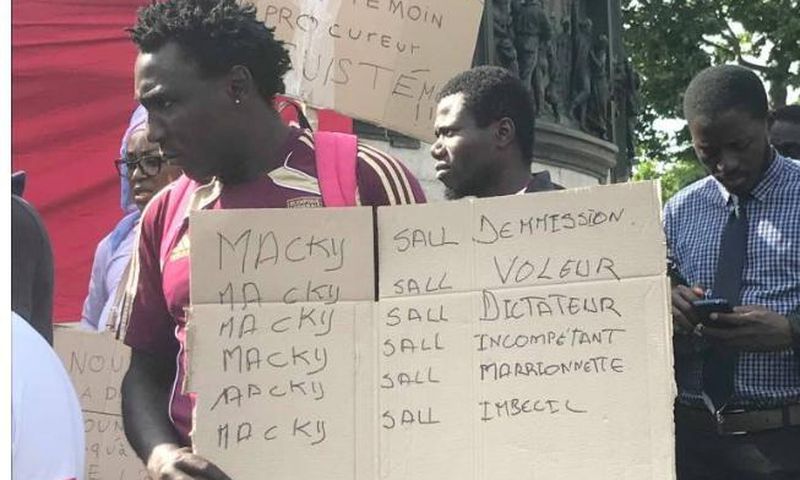 TEMOIN
PROCUREUR
MACKY SALL DEMMISSION.
MACKY SALL VOLEUR
MACKY SALL DICTATEUR
MACKY SALL INCOMPÉTANT
MACKY SALL MARRIONNETTE
MACKY SALL IMBECIL
NOU